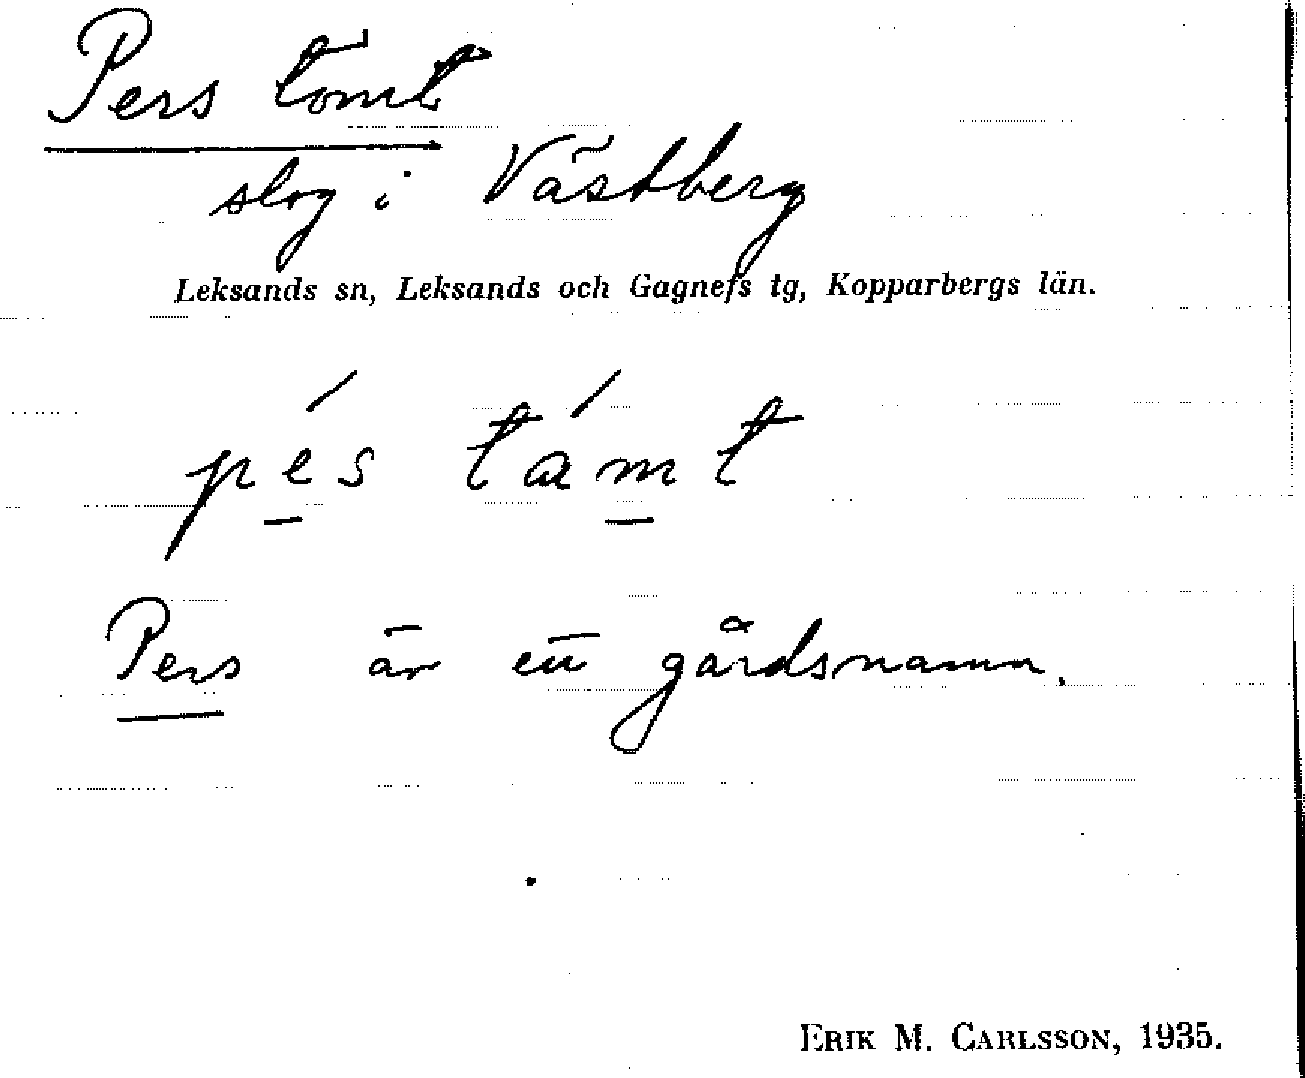 Pers tömt
slog i Västberg
Leksands sn, Leksands och Gagnefs tg, Kopparbergs län.
pés támt
Pers är ett gårdsnamn.
ERIK M. CARLSSON, 1935.